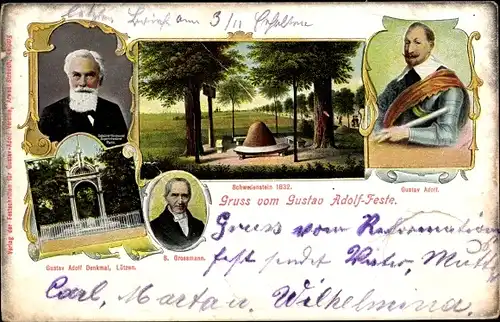 Letzten Brief am 3/11 Erhalten
Schwedenstein 1832.
Gruss vom Gustav Adolf-Feste.
Gustav Adolf.
G. Grossmann.
Gustav Adolf Denkmal, Lützen.
Gruss vom Reformations
fest sendet Vater, Mutt
Carl, Martan, Wilhelmina.